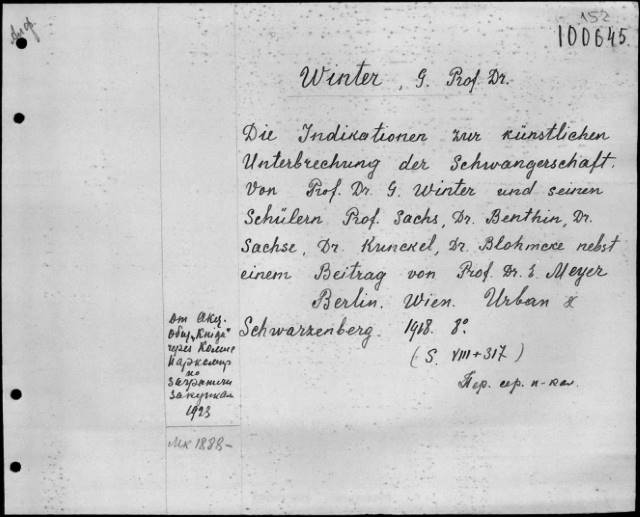 152
100645
Winter, G. Prof. Dr.
Die Indikationen zur künstlichen
Unterbrechung der Schwangerschaft.
Von Prof. Dr. G. Winter und seinen
Schülern Prof. Sachs, Dr. Benthin, Dr.
Sachse, Dr. Kunckel, Dr. Blohmcke nebst
einem Beitrag von Prof. Dr. E. Meyer
Berlin. Wien. Urban &
Schwarzenberg. 1918. 8°.
(S. VIII+317)
Пер. сер. п-кол.
От Акц.
Общ. „Книга"
через Комис
Наркомпр
по
заграничн
закупкам
1923
Мк 1888-